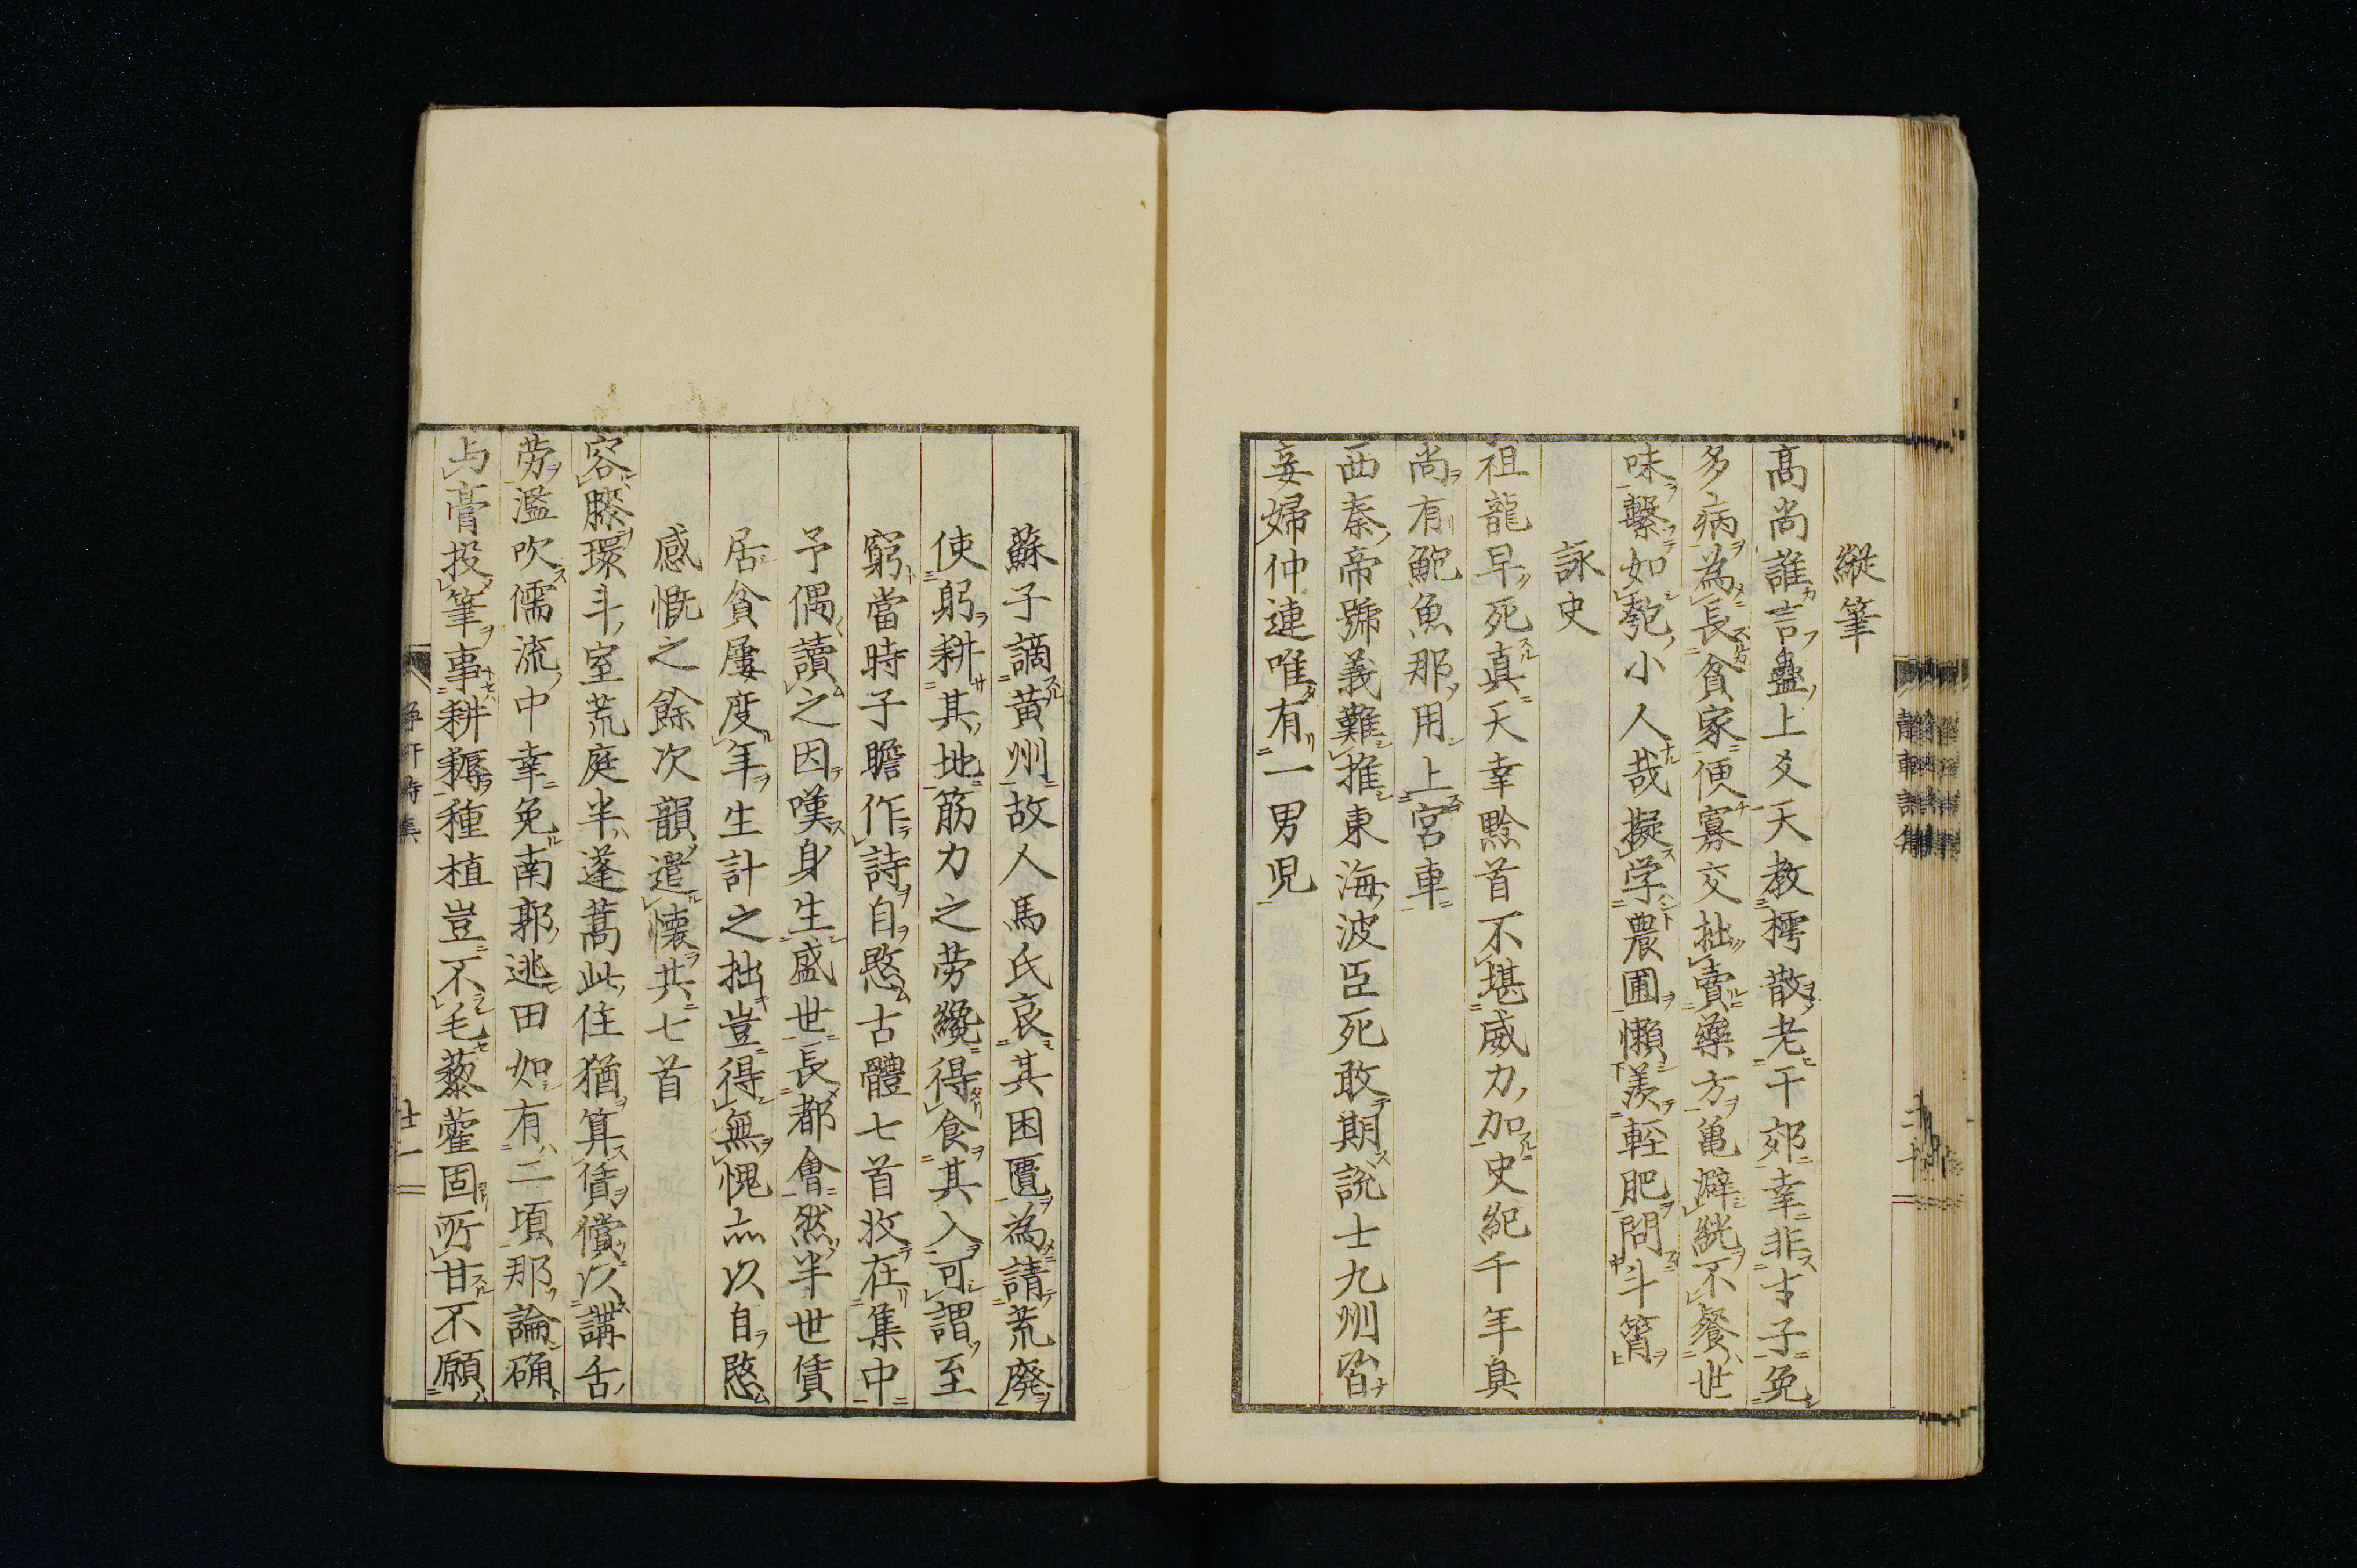 縱筆
高尚誰言蠱上爻天教樗散老干郊幸非才子免
多病為長貧家便寡交拙賣藥方亀澼絖不餐世
味繫如匏小人哉擬学農圃懶羨軽肥問斗筲
詠史
祖龍早死真天幸黔首不堪威力加史紀千年臭
尚有鮑魚那用上宮車
西秦帝號義難推東海波臣死敢期説士九州皆
妾婦仲連唯有一男児
蘇子謫黄州故人馬氏哀其困匱為請荒廢
使躬耕其地筋力之労纔得食其入可謂至
窮當時子瞻作詩自愍古體七首收在集中
予偶讀之因嘆身生盛世長都會然半世賃
居貧屢度年生計之拙豈得無愧亦以自愍
感慨之餘次韻遣懐共七首
容膝環斗室荒庭半蓬蒿此住猶算賃償以講舌
労濫吹儒流中幸免南郭逃田如有二頃那論确
与膏投筆事耕耨種植豈不毛藜藿固所甘不願